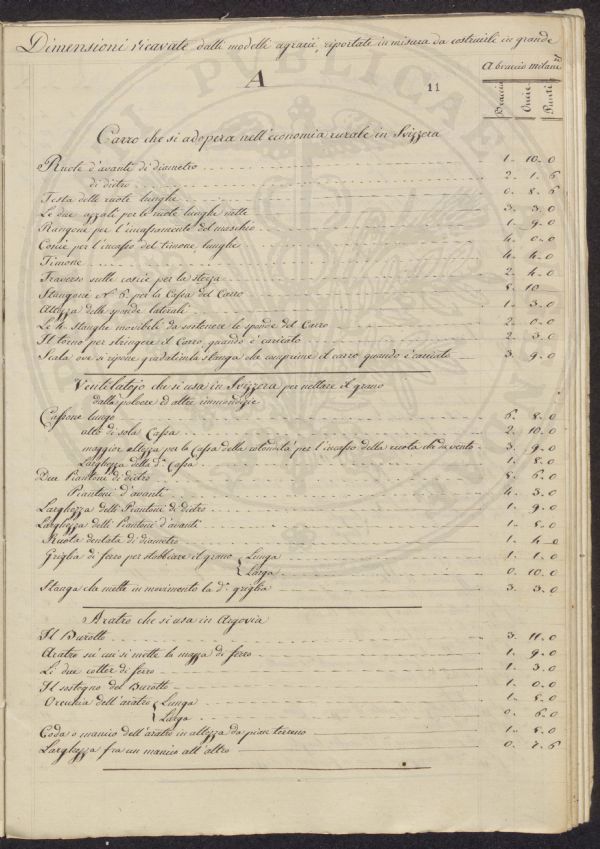 Dimensioni ricavate dalli modelli agrarii, riportate in misura da costruirle in grande
A braccio milane
A
11
Braccia Oncie Punti
Carro che si adopera nell'economia rurale in Svizzera
Ruote d'avanti di diametro 1. 10. 0
di dietro 2. 1. 6
Testa delle ruote lunghe 0. 8. 6
Le due azzali per le ruote lunghe nette 3. 3. 0
Rangone per l'incassamento del maschio 1. 9. 0
Coscie per l'incasso del timone lunghe 4. 0. 0
Timone 4. 4. 0
Traverso sulle coscie per la sterza 2. 4. 0
Stangone N° 6. per la Cassa del Carro 8. 10
Altezza delle sponde laterali 1. 3. 0
Le 4. Stanghe movibili da sostenere le sponde del Carro 2. 0. 0
Il torno per stringere il Carro quando è caricato 2. 3. 0
Scala ove si ripone la stanga che comprime il carro quando è caricato 3. 9. 0
Ventilatojo che si usa in Svizzera per nettare il grano
dalla polvere ed altre immondizie
Cassone lungo 6. 8. 0
alto di sola Cassa 2. 10. 0
maggior altezza per la Cassa della rotondità per l'incasso della ruota che da vento 3. 9. 0
Larghezza della d.a Cassa 1. 8. 0
Due Piantoni di dietro 8. 6. 0
Piantoni d'avanti 4. 3. 0
Larghezza delli Piantoni di dietro 1. 9. 0
Larghezza delli Piantoni d'avanti 1. 8. 0
Ruota dentata di diametro 1. 4. 0
Griglia di ferro per stobbiare il grano { Lunga 1. 1. 0
{ Larga 0. 10. 0
Stanga che mette in movimento la d.a griglia 3. 3. 0
Aratro che si usa in Argovia
Il Burotto 3. 11. 0
Aratro su cui si mette la mazza di ferro 1. 9. 0
Le due colter di ferro 1. 3. 0
Il sostegno del Burotto 1. 0. 0
Orecchia dell'aratro { Lunga 1. 8. 0
{ Larga 0. 6. 0
Coda o manico dell'aratro in altezza da pian terreno 1. 8. 0
Larghezza fra un manico all'altro 0. 7. 6